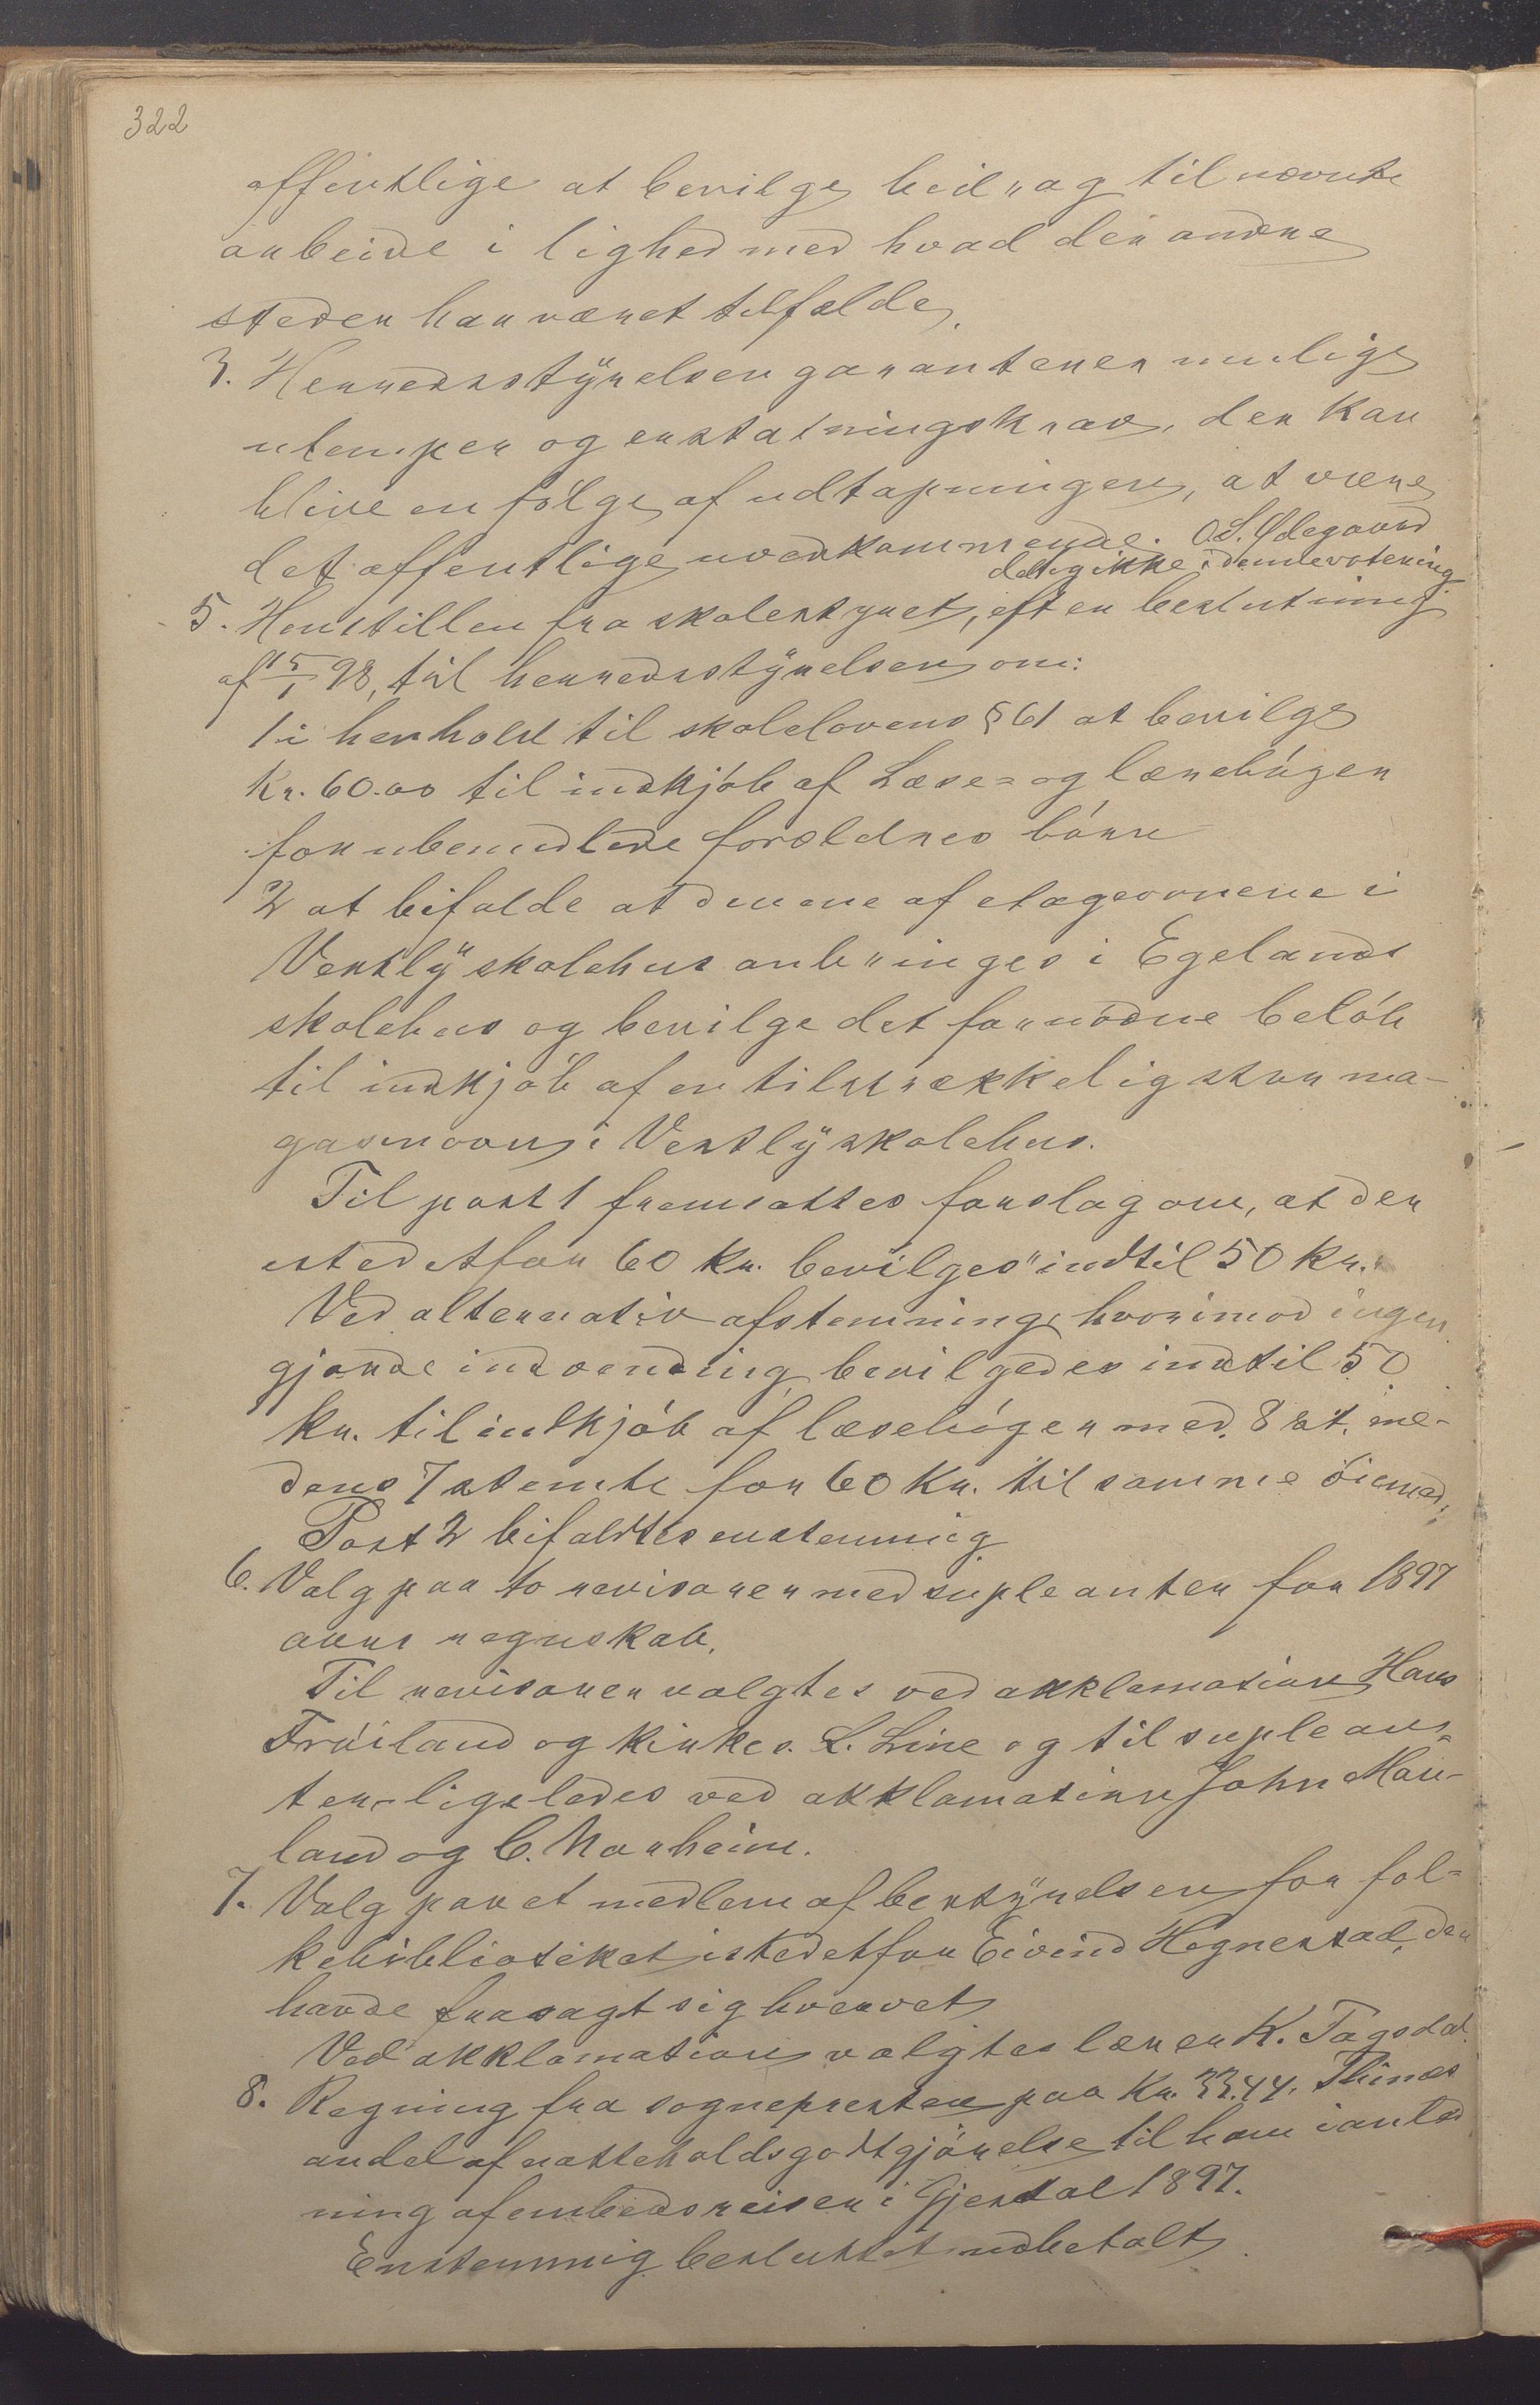 322
offentlige at bevilge bidrag til nævnte
arbeide i lighed med hvad der andre
steder har været tilfælde.
3. Herredsstyrelsen garanterer mulige
ulemper og erstatningskrav, der kan
blive en følge af udtapningen, at være
det offentlige uvedkommende. O. S. Ødegaard
deltog ikke i denne votering
5. Henstillen fra skolestyret, efter beslutning
af 15/1 98, til herredsstyrelsen om:
1 i henhold til skolelovens § 61 at bevilge
Kr. 60.00 til indkjøb af Læse= og lærebøger
for ubemidlede forældres børn
2 at bifalde at denne af etageovnene i
Vestly skolehus anbringes i Egelands
skolehus og bevilge det fornødne beløb
til indkjøb af en tilstrækkelig stor ma-
gasinovn i Vestly skolehus.
Til post 1 fremsattes forslag om, at der
istedetfor 60 kr. bevilges "indtil 50 kr."
Ved alternativ afstemning, hvorimod ingen
gjorde indvending, bevilgedes indtil 50
kr. til indkjøb af læsebøger med 8 st. me-
dens 7 stemte for 60 Kr. til samme øiemed.
Post 2 bifaldtes enstemmig
6. Valg paa to revisorer med supleanter for 1897
aars regnskab.
Til revisorer valgtes ved akklamation Hans
Frøiland og kirkes. L. Line og til suplean=
ter ligeledes ved akklamation John Hau-
land og C. Norheim.
7. Valg paa et medlem af bestyrelsen for fol=
kebiblioteket istedetfor Eivind Hognestad, der
havde frasagt sig hvervet
Ved akklamation valgtes lærer K. Tagsdal.
8. Regning fra sognepresten paa Kr. 33.44. Thimes
andel af natteholdsgodtgjørelse til ham i anled
ning af embedsreiser i Gjesdal 1897.
Enstemmig besluttet udbetalt.